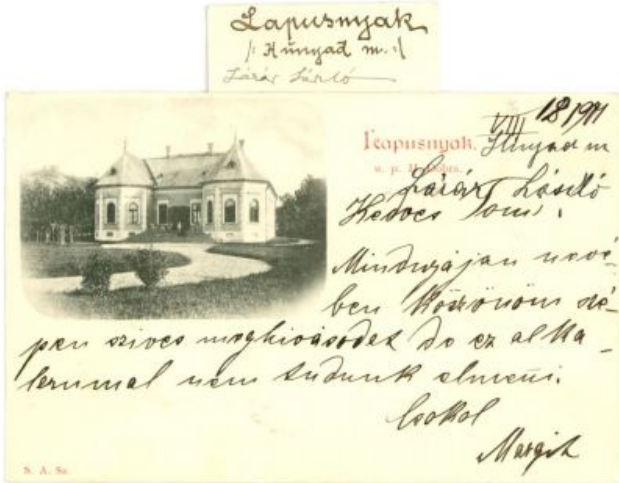 Lapusnyak
/: Hunyad m. :/
Lázár László
VIII 18 1911
Lapusnyak. Hunyad m
u. p. H. Dobra.
Lázár László
Kedves Tomi.
Mindnyájan nevé-
ben köszönöm szé-
pen szives meghivásodat de ez alka-
lommal nem tudunk elmenni.
Csokol
Margit
S. A. Sz.